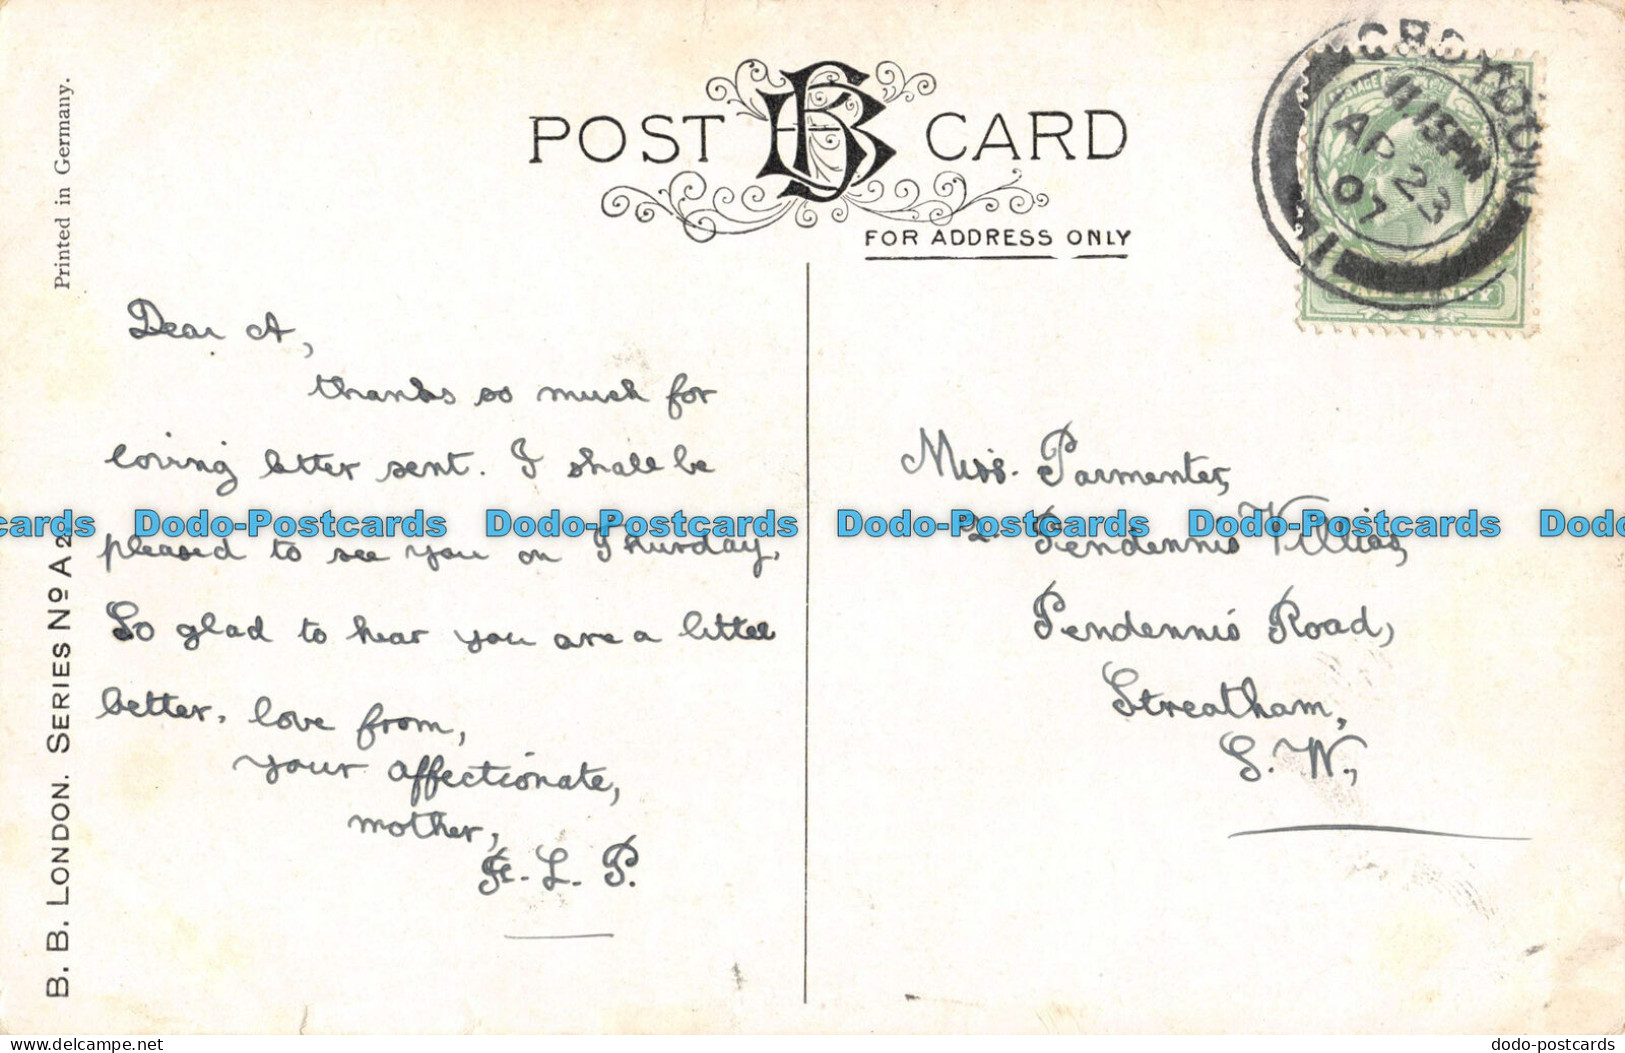 POST CARD
FOR ADDRESS ONLY
Printed in Germany.
B. B. LONDON. SERIES Nº A 2
CROYDON
11 15 PM
AP 23
07
11
Dear A,
thanks so much for
loving letter sent. I shall be
pleased to see you on Thursday.
So glad to hear you are a little
better. love from,
your affectionate,
mother,
L. P.
Miss. Parmenter,
2. Pendennis Villas,
Pendennis Road,
Streatham,
S. W.,
cards Dodo-Postcards Dodo-Postcards Dodo-Postcards Dodo-Postcards Dodo
Dodo-postcards.com
dodo-postcards